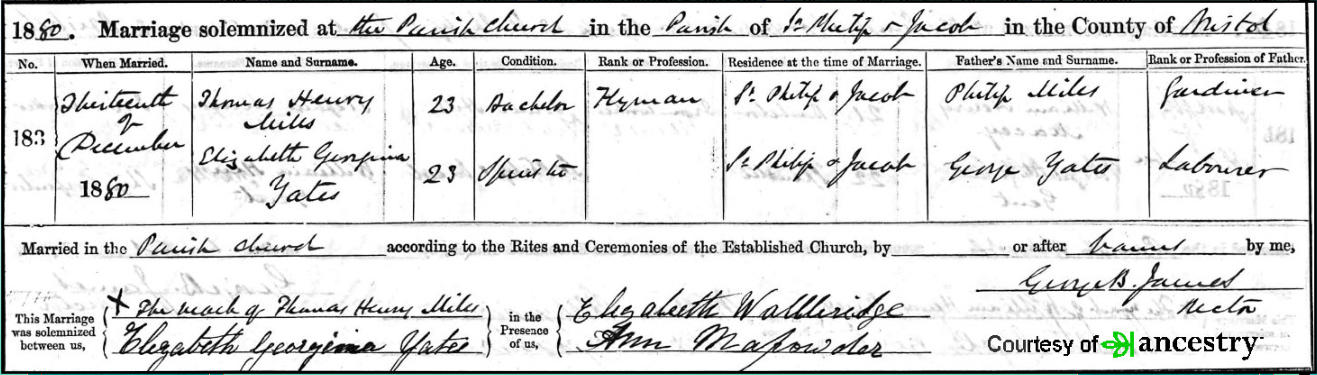 1880. Marriage solemnized at the Parish Church in the Parish of St Philip & Jacob in the County of Bristol
No. When Married. Name and Surname. Age. Condition. Rank or Profession. Residence at the time of Marriage. Father's Name and Surname. Rank or Profession of Father.
183 Thirteenth of December 1880 Thomas Henry Miles 23 Bachelor Flyman St Philip & Jacob Philip Miles Gardiner
Elizabeth Georgina Yates 23 Spinster St Philip & Jacob George Yates Labourer
Married in the Parish Church according to the Rites and Ceremonies of the Established Church, by or after banns by me,
George B. James
Rector
This Marriage was solemnized between us, X The mark of Thomas Henry Miles
Elizabeth Georgina Yates
in the Presence of us, Elizabeth Wallbridge
Ann Mapowder
Courtesy of ancestry